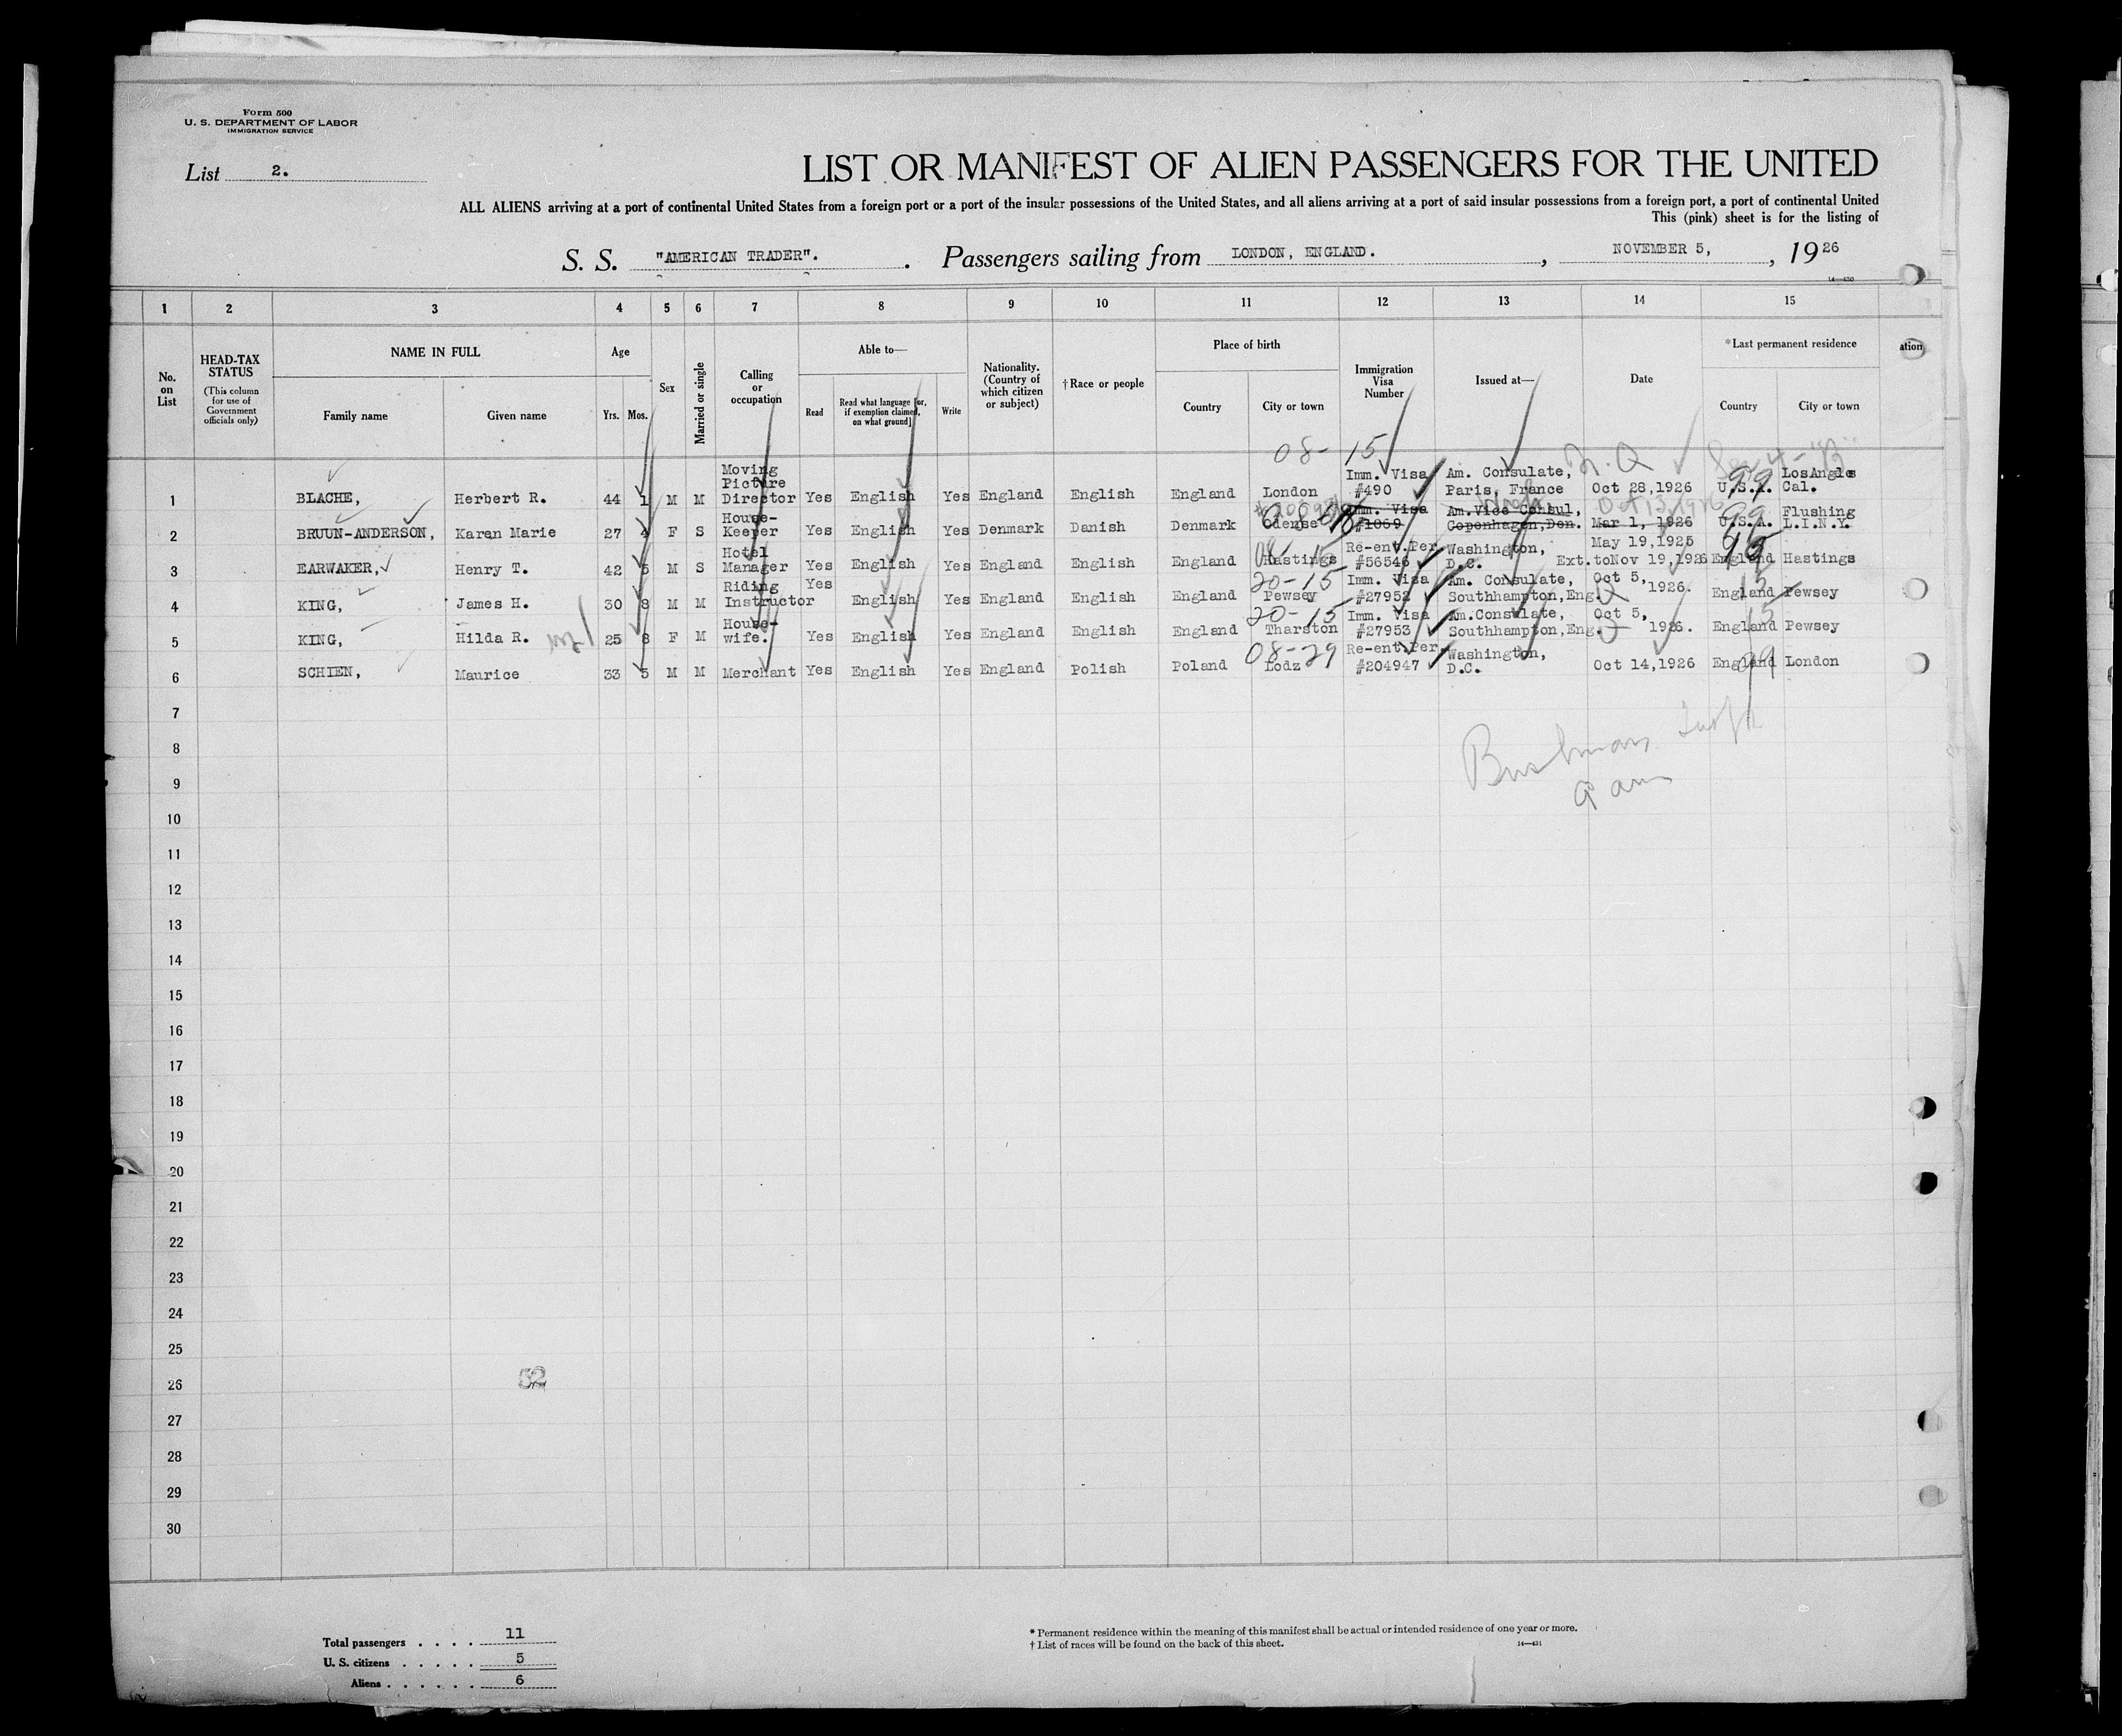 Form 500
U. S. DEPARTMENT OF LABOR
IMMIGRATION SERVICE
List 2.
LIST OR MANIFEST OF ALIEN PASSENGERS FOR THE UNITED
ALL ALIENS arriving at a port of continental United States from a foreign port or a port of the insular possessions of the United States, and all aliens arriving at a port of said insular possessions from a foreign port, a port of continental United
This (pink) sheet is for the listing of
S. S. "AMERICAN TRADER". . Passengers sailing from LONDON, ENGLAND. , NOVEMBER 5, , 1926
14—430
1 2 3 4 5 6 7 8 9 10 11 12 13 14 15
No. on List
HEAD-TAX STATUS
(This column for use of Government officials only)
NAME IN FULL
Family name
Given name
Age
Yrs. Mos.
Sex
Married or single
Calling or occupation
Able to—
Read
Read what language [or, if exemption claimed, on what ground]
Write
Nationality. (Country of which citizen or subject)
†Race or people
Place of birth
Country
City or town
Immigration Visa Number
Issued at—
Date
*Last permanent residence
Country
City or town
ation
08-15
N.Q
1 BLACHE, Herbert R. 44 1 M M Moving Picture Director Yes English Yes England English England London Imm. Visa #490 Am. Consulate, Paris, France Oct 28,1926 U.S.A. LosAngles Cal.
99
2 BRUUN-ANDERSON, Karen Marie 27 4 F S House-Keeper Yes English Yes Denmark Danish Denmark Odense Imm. Visa #1069 Am.Vice Consul, Copenhagen,Den. Mar 1, 1926 U.S.A. Flushing L.I.N.Y.
Oct 13, 1926
99
3 EARWAKER, Henry T. 42 5 M S Hotel Manager Yes English Yes England English England Hastings Re-ent.Per #56546 Washington, D.C. May 19,1925 Ext.toNov 19,1926 England Hastings
4 KING, James H. 30 8 M M Riding Instructor Yes English Yes England English England Pewsey Imm. Visa #27952 Am. Consulate, Southhampton,Eng. Oct 5, 1926. England Pewsey
20-15
15
5 KING, Hilda R. 25 8 F M House-wife. Yes English Yes England English England Tharston Imm. Visa #27953 Am.Consulate, Southhampton,Eng. Oct 5, 1926. England Pewsey
20-15
15
6 SCHIEN, Maurice 33 5 M M Merchant Yes English Yes England Polish Poland Lodz Re-ent.Per #204947 Washington, D.C. Oct 14,1926 England London
08-29
99
7
8
9
10
11
12
13
14
15
16
17
18
19
20
21
22
23
24
25
26
27
28
29
30
52
Total passengers . . . . 11
U. S. citizens . . . . . 5
Aliens . . . . . . 6
* Permanent residence within the meaning of this manifest shall be actual or intended residence of one year or more.
† List of races will be found on the back of this sheet.
14—431